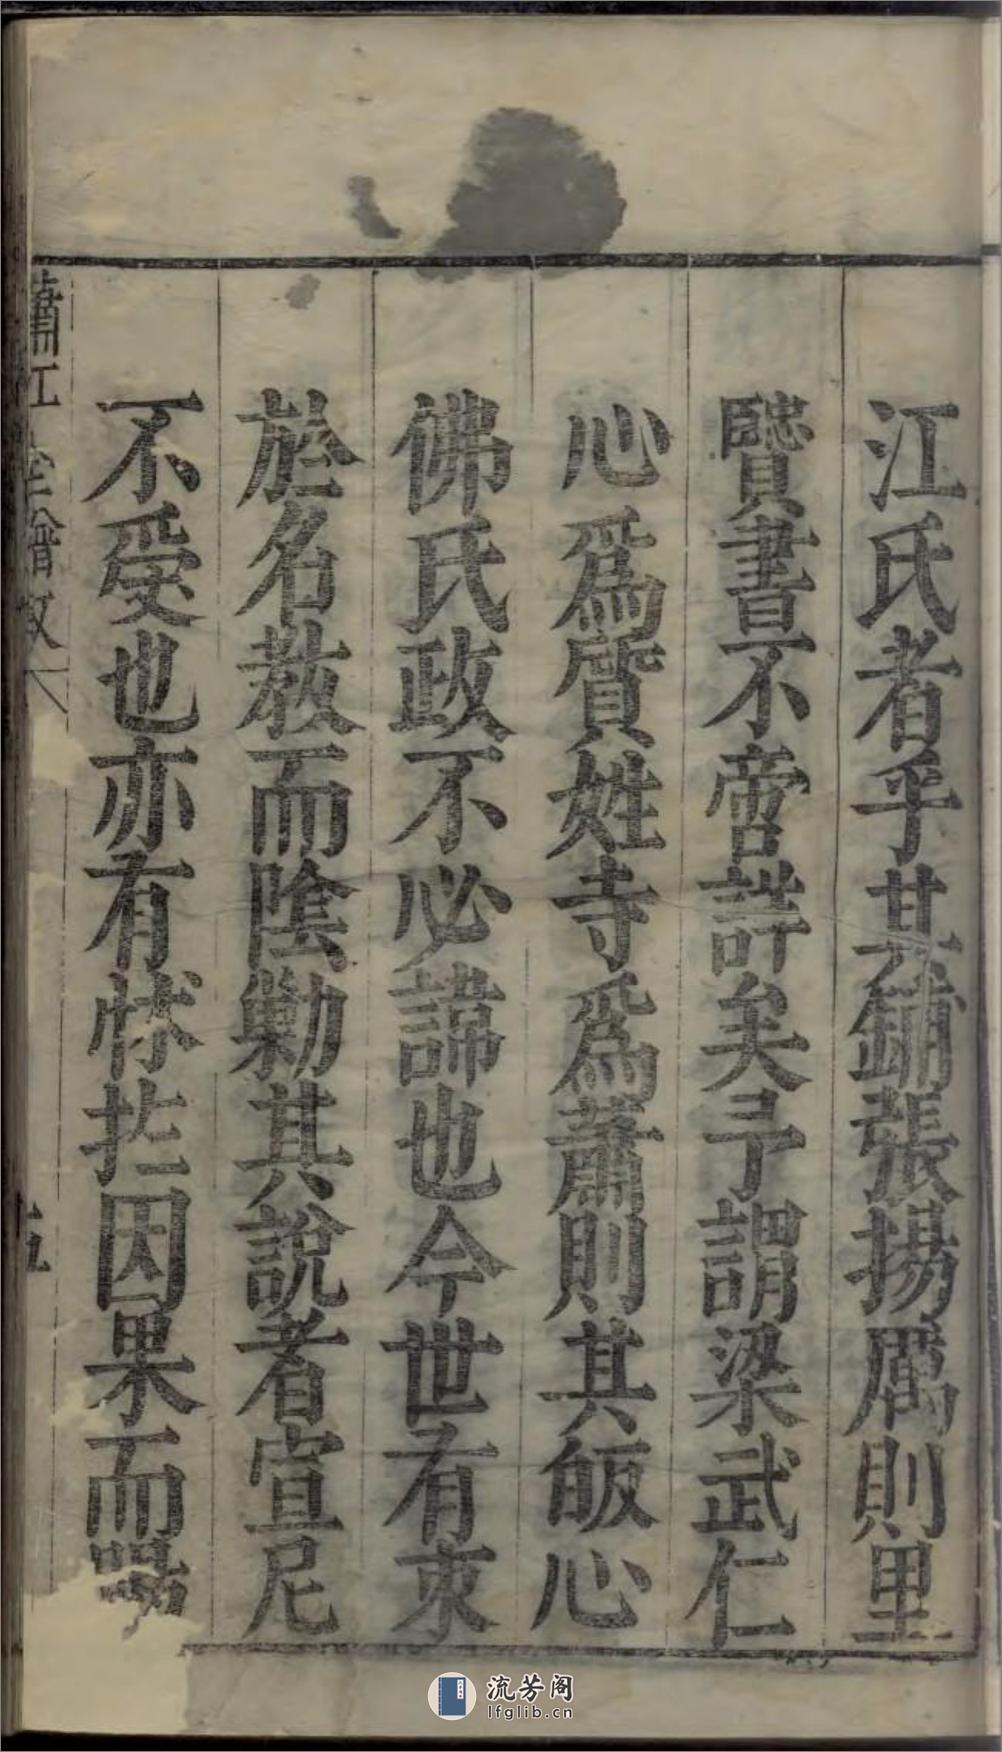 江氏者乎其鋪張揚厲則里
贒書不啻詳矣予謂梁武仁
心為質姓寺為蕭則其皈心
佛氏政不必諱也今世有求
於名教而陰勦其說者宣尼
不受也亦有怵扵因果而
蕭江全譜叙
五
流芳阁
lfglib.cn